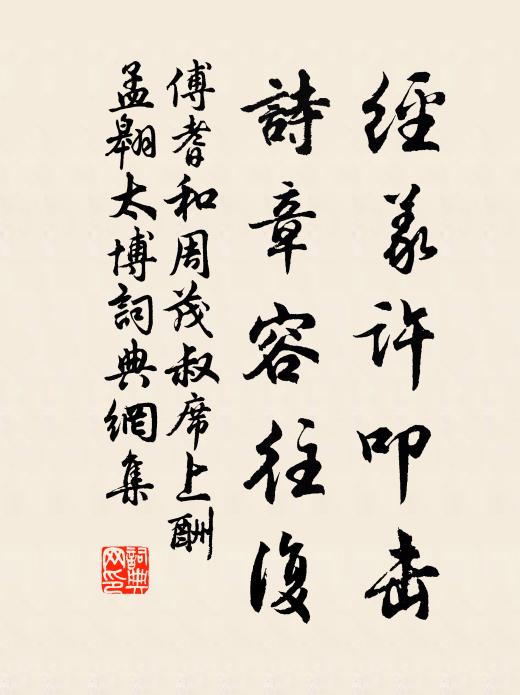 經義許叩擊
詩章容往復
傅耆和周茂叔席上酬
孟翱太博詞典網集
詞典網印